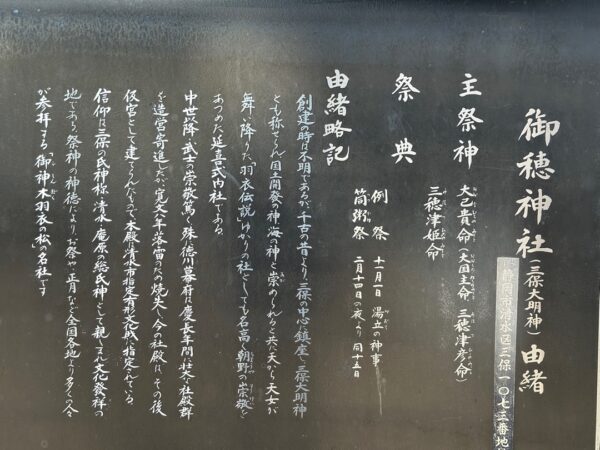 御穂神社(三保大明神)由緒
静岡市清水区三保一〇七三番地
主祭神 大己貴命(大国主命 三穂津彦命)
三穂津姫命
祭典 例祭 十一月一日 湯立の神事
筒粥祭 二月十四日の夜より同十五日
由緒略記
創建の時は不明であるが、千古の昔より、三保の中心に鎮座し、三保大明神
とも称せられ国土開發の神、海の神と崇められると共に、天から天女が
舞い降りた「羽衣伝説」ゆかりの社としても名高く、朝野の崇敬を
あつめた延喜式内社である。
中世以降、武士の崇敬篤く、殊に徳川幕府は慶長年間に壮大な社殿群
を造営寄進したが、寛文年落雷のため焼失し、今の社殿は、その後
仮宮として建てられたもので本殿は清水市指定有形文化財に指定されている。
信仰は三保の氏神様、清水・庵原の総氏神として親しまれ文化發祥の
地であり祭神の神徳により、お祭や正月などは全国各地より多くの人々
が参拝する、御神木羽衣の松の名社です